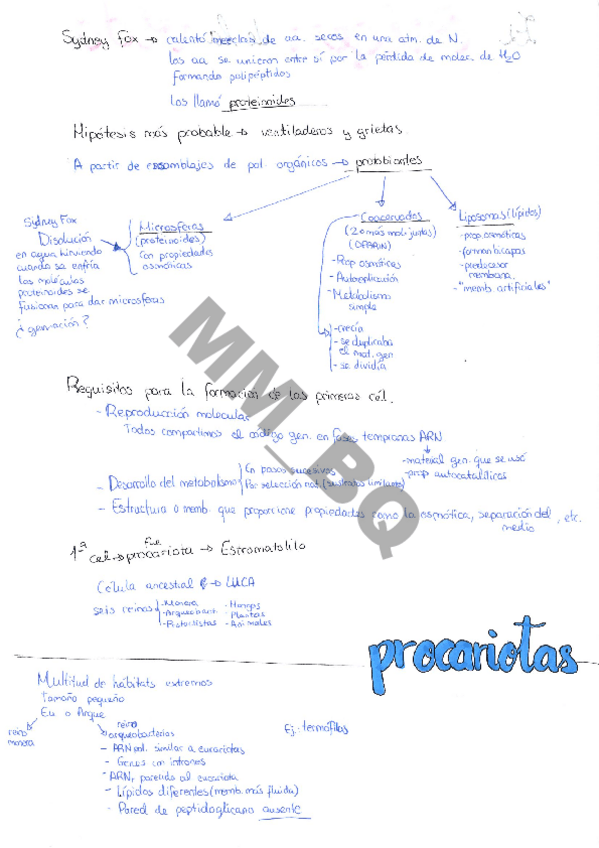 Sydney Fox → calentó mezclas de aa. secos en una atm. de N.
los aa se unieron entre sí por la pérdida de molec. de H2O
formando polipéptidos
Los llamó proteinoides
Hipótesis más probable → ventiladeros y grietas
A partir de ensamblajes de pol. orgánicos → protobiontes
Sydney Fox
Disolución
en agua hirviendo
cuando se enfría
las moléculas
proteinoides se
fusionan para dar microsferas
¿gemación?
Microsferas
(proteinoides)
Con propiedades
osmóticas
Coacervados
(2 o más mol. juntas)
(OPARIN)
- Prop osmóticas
- Autorreplicación
- Metabolismo
simple
- crecía
- se duplicaba
el mat. gen
- se dividía
Liposomas (lípidos)
- prop. osmóticas
- forman bicapas
- predecesor
membrana.
- "memb. artificiales"
Requisitos para la formación de las primeras cél.
- Reproducción molecular
Todos compartimos el código gen. en fases tempranas ARN
- material gen. que se usó
- prop autocatalíticas
- Desarrollo del metabolismo
En pasos sucesivos
Por selección nat. (sustratos
- Estructura o memb. que proporcione propiedades como la osmótica, separación del medio, etc.
1ª cel → fue procariota → Estromatolito
Célula ancestral → LUCA
seis reinos
- Monera
- Arqueobact.
- Protoctistas
- Hongos
- Plantas
- Animales
procariotas
Multitud de hábitats extremos
Tamaño pequeño
Eu o Arque
reino
monera
reino
arqueobacterias
- ARN pol. similar a eucariotas
- Genes con intrones
- ARNt parecido al eucariota
- Lípidos diferentes (memb. más fluida)
- Pared de peptidoglicano ausente
Ej: termófilas
MM_BQ